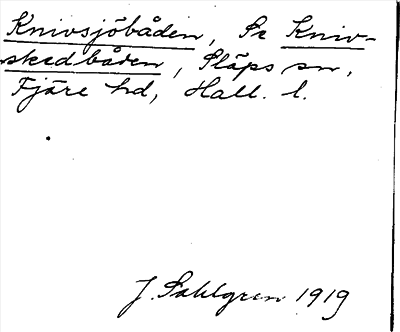 Knivsjöbåden, Se Kniv-
skedbåden, Släps sn,
Fjäre hd, Hall. l.
J. Sahlgren 1919